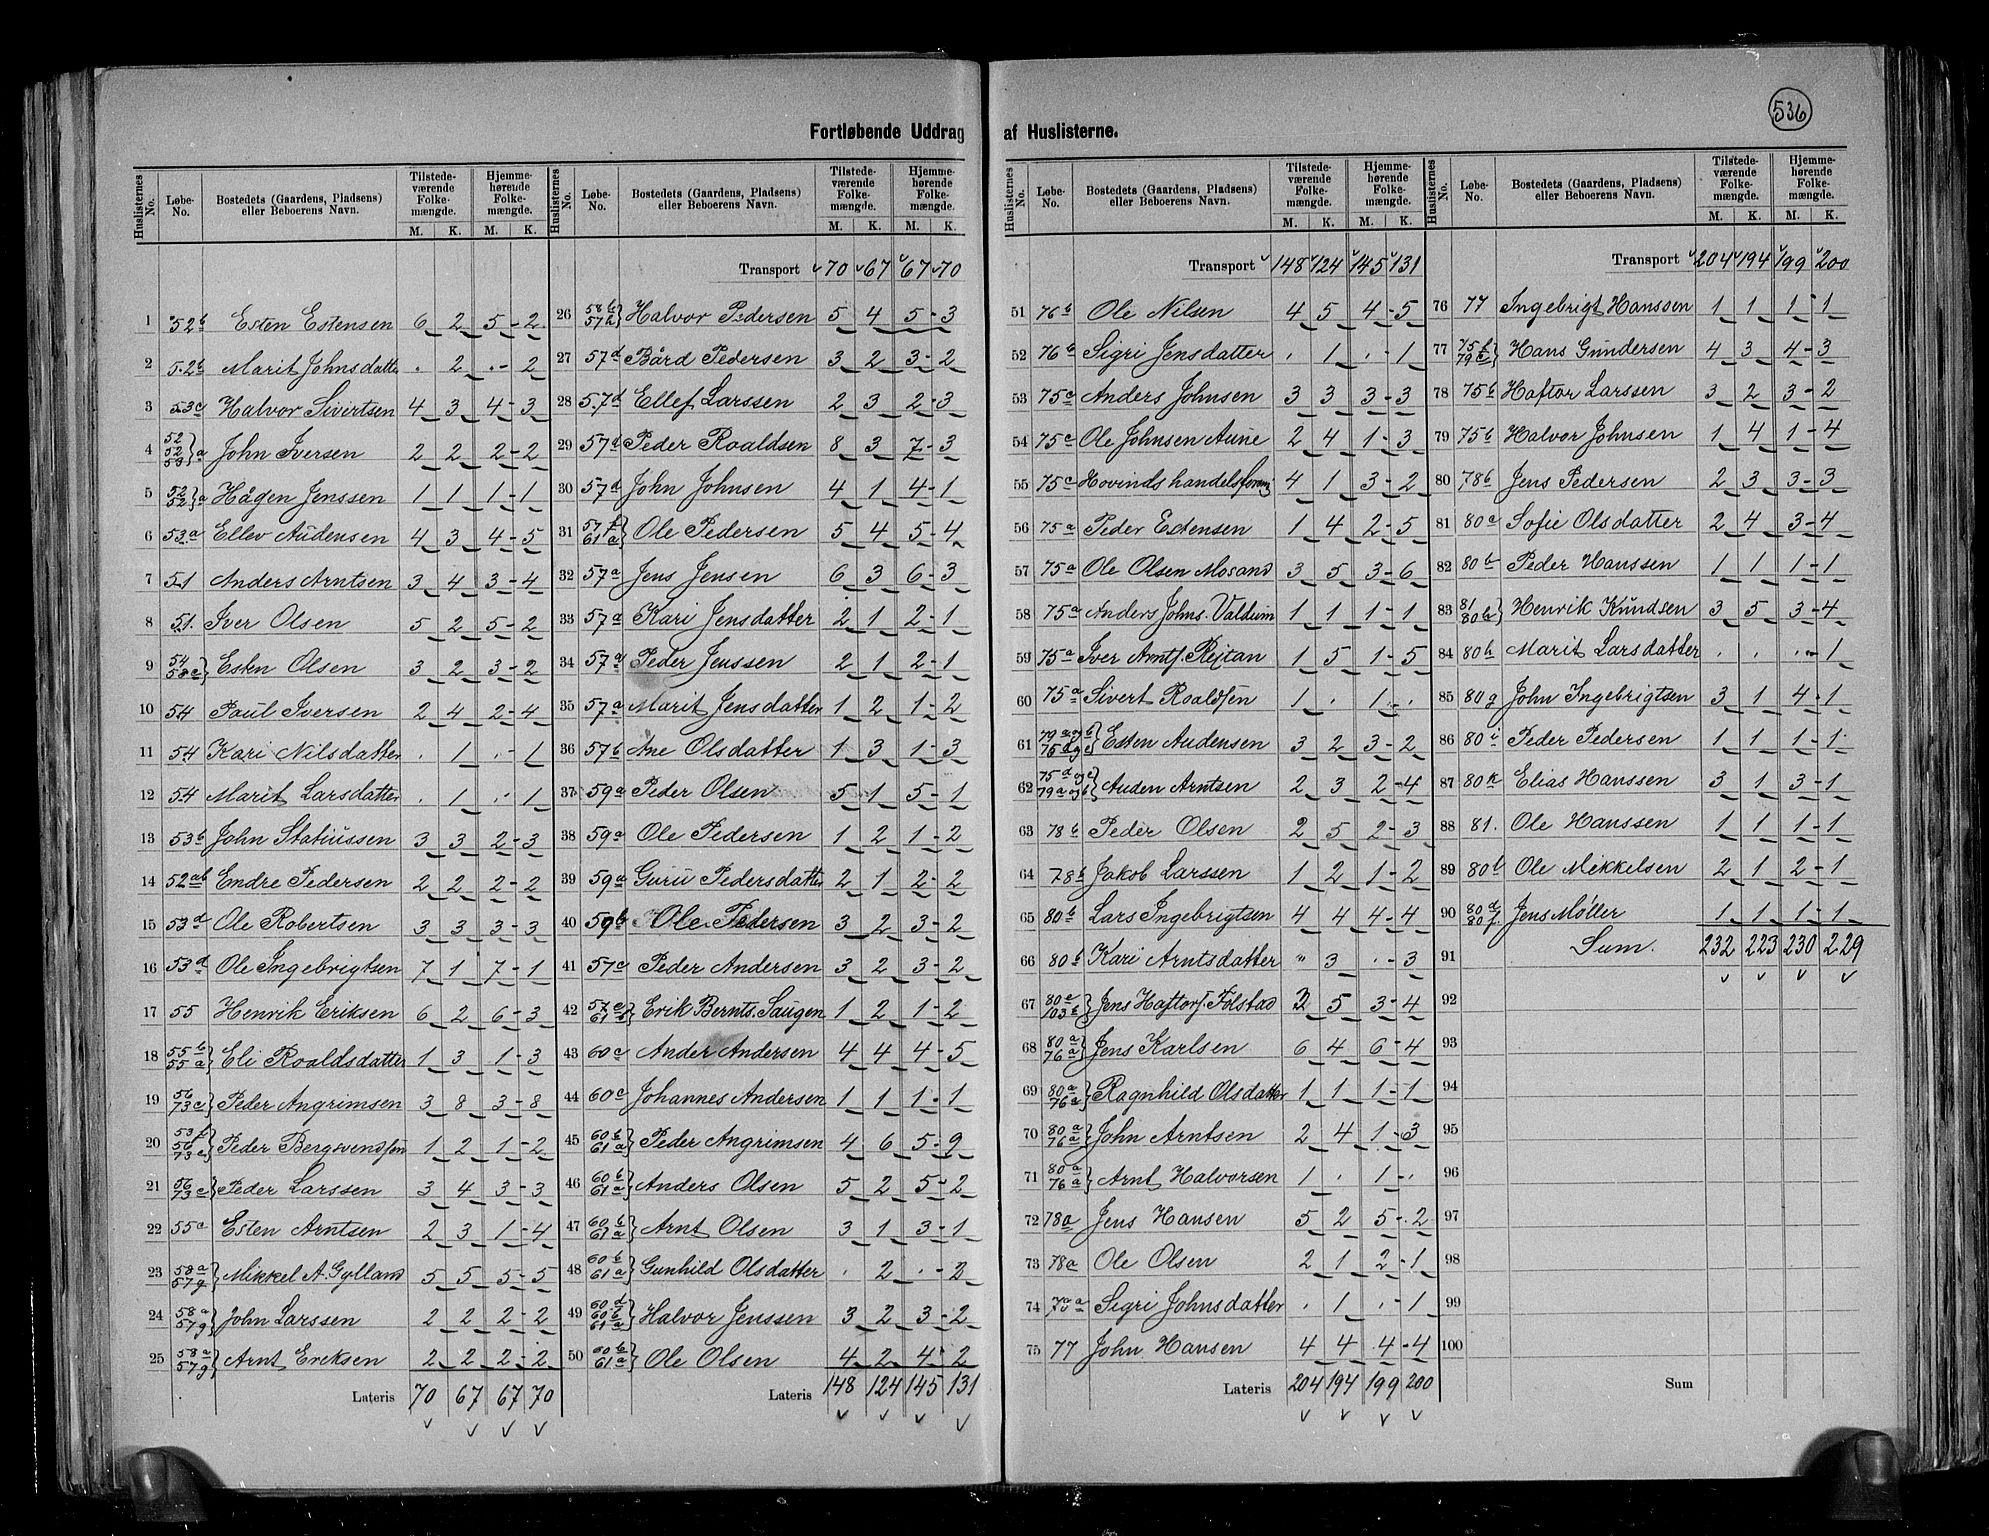 536
Fortløbende Uddrag af Huslisterne.
Huslisternes No. Løbe-No. Bostedets (Gaardens, Pladsens) eller Beboerens Navn. Tilstede-værende Folke-mængde. Hjemme-hørende Folke-mængde.
M. K. M. K.
1 52b Esten Estensen 6 2 5-2
2 52b Marit Johnsdatter . 2 .-2
3 53c Halvor Sivertsen 4 3 4-3
4 52 52 53 } a John Iversen 2 2 2-2
5 52 52 } a Hågen Jenssen 1 1 1-1
6 53a Ellev Audensen 4 3 4-5
7 51 Anders Arntsen 3 4 3-4
8 51. Iver Olsen 5 2 5-2
9 54 53c } Esten Olsen 3 2 3-2
10 54 Paul Iversen 2 4 2-4
11 54 Kari Nilsdatter . 1 .-1
12 54 Marit Larsdatter . 1 .-1
13 53b John Statiussen 3 3 2-3
14 52ab Endre Pedersen 2 2 2-2
15 53d Ole Robertsen 3 3 3-3
16 53d Ole Ingebrigtsen 7 1 7-1
17 55 Henrik Eriksen 6 2 6-3
18 55b 55a } Eli Roaldsdatter 1 3 1-3
19 56 73c } Peder Angrimsen 3 8 3-8
20 53f 56 73c } Peder Bergsvendsen 1 2 1-2
21 56 73c } Peder Larssen 3 4 3-3
22 55a Esten Arntsen 2 3 1-4
23 58a 57g } Mikkel A. Gylland 5 5 5-5
24 58a 57g } John Larssen 2 2 2-2
25 58a 57g } Arnt Ereksen 2 2 2-2
Lateris 70 67 67 70
Transport 70 67 67 70
26 58b 57h } Halvor Pedersen 5 4 5-3
27 57d Bård Pedersen 3 2 3-2
28 57d Ellef Larssen 2 3 2-3
29 57d Peder Roaldsen 8 3 7-3
30 57d John Johnsen 4 1 4-1
31 57f 61a } Ole Pedersen 5 4 5-4
32 57a Jens Jensen 6 3 6-3
33 57a Kari Jensdatter 2 1 2-1
34 57a Peder Jenssen 2 1 2-1
35 57a Marit Jensdatter 1 2 1-2
36 57b Ane Olsdatter 1 3 1-3
37 59a Peder Olsen 5 1 5-1
38 59a Ole Pedersen 1 2 1-2
39 59a Guru Pedersdatter 2 1 2-2
40 59b Ole Pedersen 3 2 3-2
41 57c Peder Andersen 3 2 3-2
42 57e 61b } Erik Bernts. Saugen 1 2 1-2
43 60c Ander Andersen 4 4 4-5
44 60c Johannes Andersen 1 1 1-1
45 60b 61a } Peder Angrimsen 4 6 5-9
46 60b 61a } Anders Olsen 5 2 5-2
47 60b 61a } Arnt Olsen 3 1 3-1
48 60b 61a } Gunhild Olsdatter . 2 .-2
49 60d 60b 61a } Halvor Jenssen 3 2 3-2
50 60b 61a } Ole Olsen 4 2 4-2
Lateris 148 124 145 131
Huslisternes No. Løbe-No. Bostedets (Gaardens, Pladsens) eller Beboerens Navn. Tilstede-værende Folke-mængde. Hjemme-hørende Folke-mængde.
M. K. M. K.
Transport 148 124 145 131
51 76b Ole Nilsen 4 5 4-5
52 76b Sigri Jensdatter . 1 .-1
53 75c Anders Johnsen 3 3 3-3
54 75c Ole Johnsen Aune 2 4 1-3
55 75c Hovinds handelsforen 4 1 3-2
56 75a Peder Estensen 1 4 2-5
57 75a Ole Olsen Mosand 3 5 3-6
58 75a Anders Johns. Valdum 1 1 1-1
59 75a Iver Arntf. Reitan 1 5 1-5
60 75a Sivert Roaldsen 1 . 1-.
61 79a og b 75d og e } Esten Audensen 3 2 3-2
62 75d og e 79a og b } Auden Arntsen 2 3 2-4
63 78b Peder Olsen 2 5 2-3
64 78b Jakob Larssen 1 2 1-2
65 80b Lars Ingebrigtsen 4 4 4-4
66 80b Kari Arntsdatter " 3 .-3
67 80e 103b } Jens Haftorf. Folstad 3 5 3-4
68 80a 76a } Jens Karlsen 6 4 6-4
69 80a 76a } Ragnhild Olsdatter 1 1 1-1
70 80a 76a } John Arntsen 2 4 1-3
71 80a 76a } Arnt Halvorsen 1 . 1-.
72 78a Jens Hansen 5 2 5-2
73 78a Ole Olsen 2 1 2-1
74 Sigri Johnsdatter . 1 .-1
75 77 John Hansen 4 4 4-4
Lateris 204 194 199 200
Transport 204 194 199 200
76 77 Ingebrigt Hanssen 1 1 1-1
77 75b 79a } Hans Gundersen 4 3 4-3
78 75b Haftor Larssen 3 2 3-2
79 75b Halvor Johnsen 1 4 1-4
80 78b Jens Pedersen 2 3 3-3
81 80a Sofie Olsdatter 2 4 3-4
82 80b Peder Hanssen 1 1 1-1
83 81 80b } Henrik Knudsen 3 5 3-4
84 80h Marit Larsdatter . . .-1
85 80g John Ingebrigtsen 3 1 4-1
86 80i Peder Pedersen 1 1 1-1
87 80k Elias Hanssen 3 1 3-1
88 81. Ole Hanssen 1 1 1-1
89 80b Ole Mikkelsen 2 1 2-1
90 80d 80f } Jens Møller 1 1 1-1
91 Sum. 232 223 230 229
92
93
94
95
96
97
98
99
100
Sum